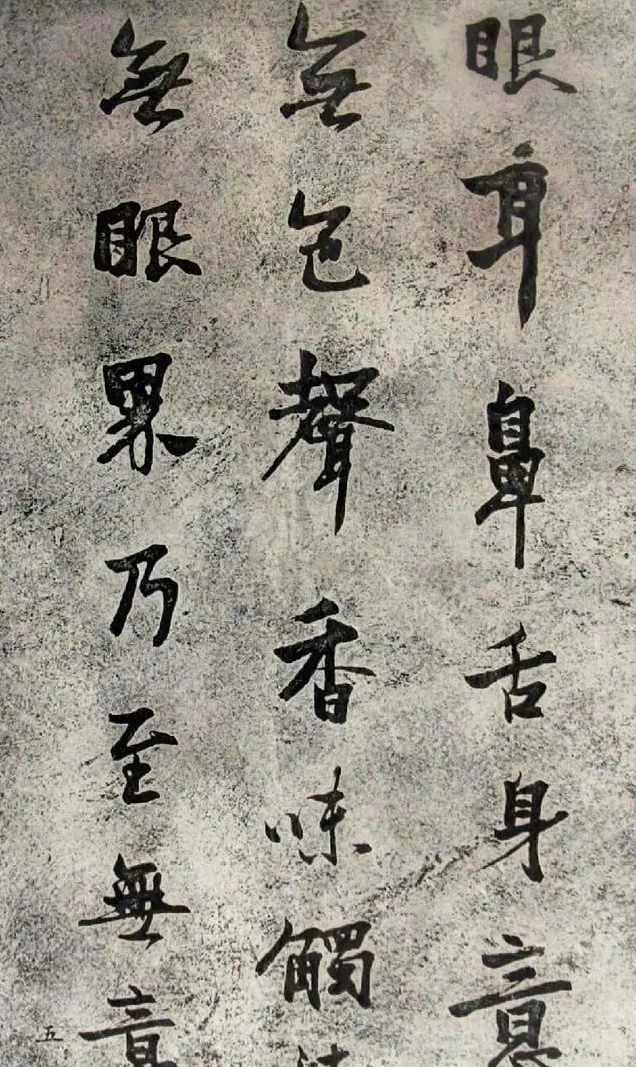 眼耳鼻舌身意
無色聲香味觸法
無眼界乃至無意
五